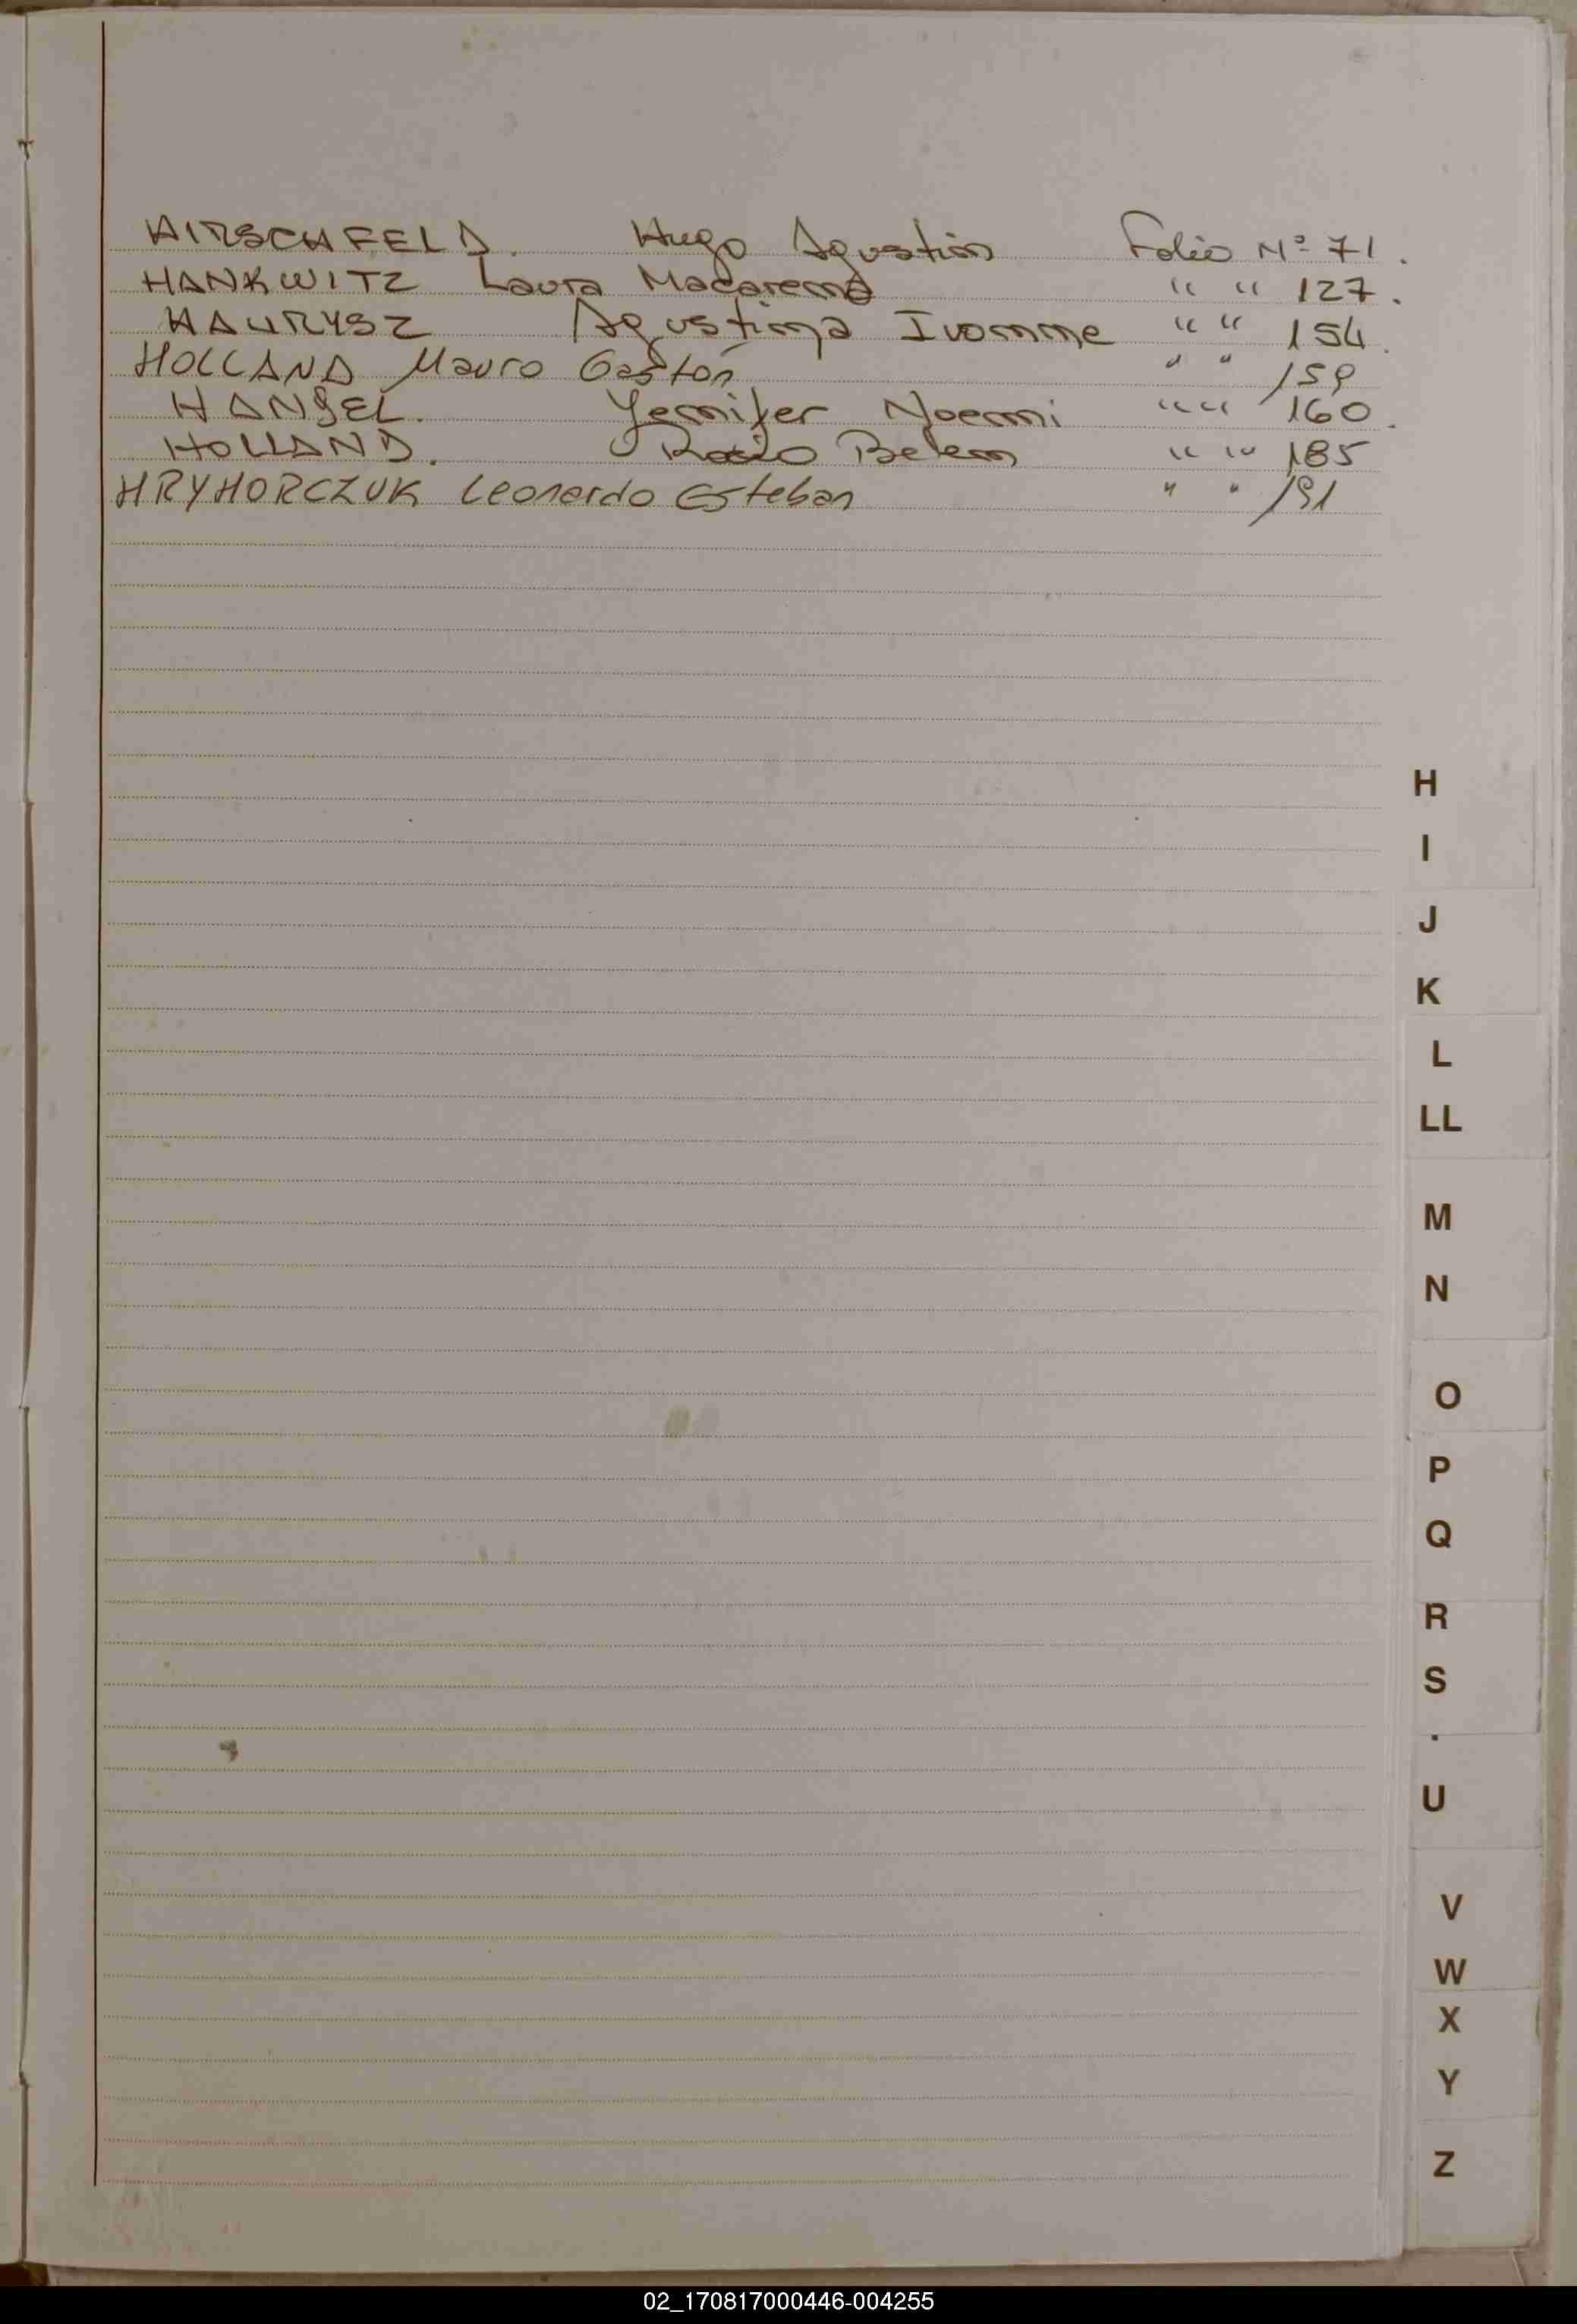 HIRSCHFELD. Hugo Agustin Folio Nº 71.
HANKWITZ Laura Macarena " " 127.
HAURYSZ Agustina Ivonne " " 154.
HOLLAND Mauro Gastón " " 159
HANSEL. Yennifer Noemi " " 160.
HOLLAND. Rocio Belen " " 185
HRYHORCZUK Leonardo Esteban " " 191
H
I
J
K
L
LL
M
N
O
P
Q
R
S
U
V
W
X
Y
Z
02_170817000446-004255